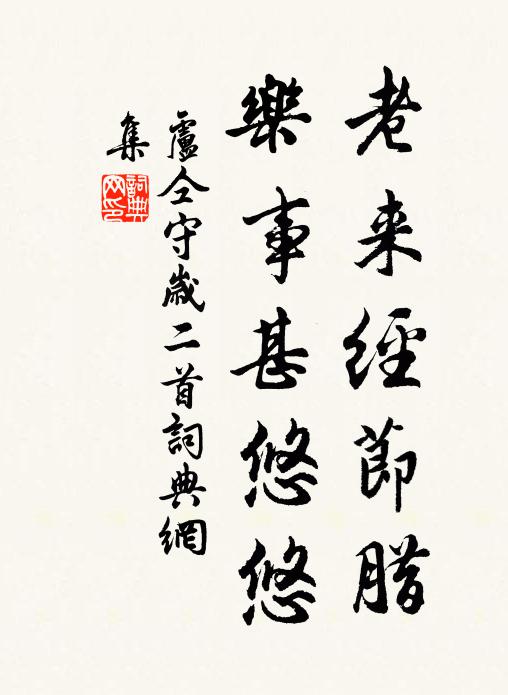 老来經節腊
樂事甚悠悠
盧仝守歲二首詞典網
集
詞典
网印